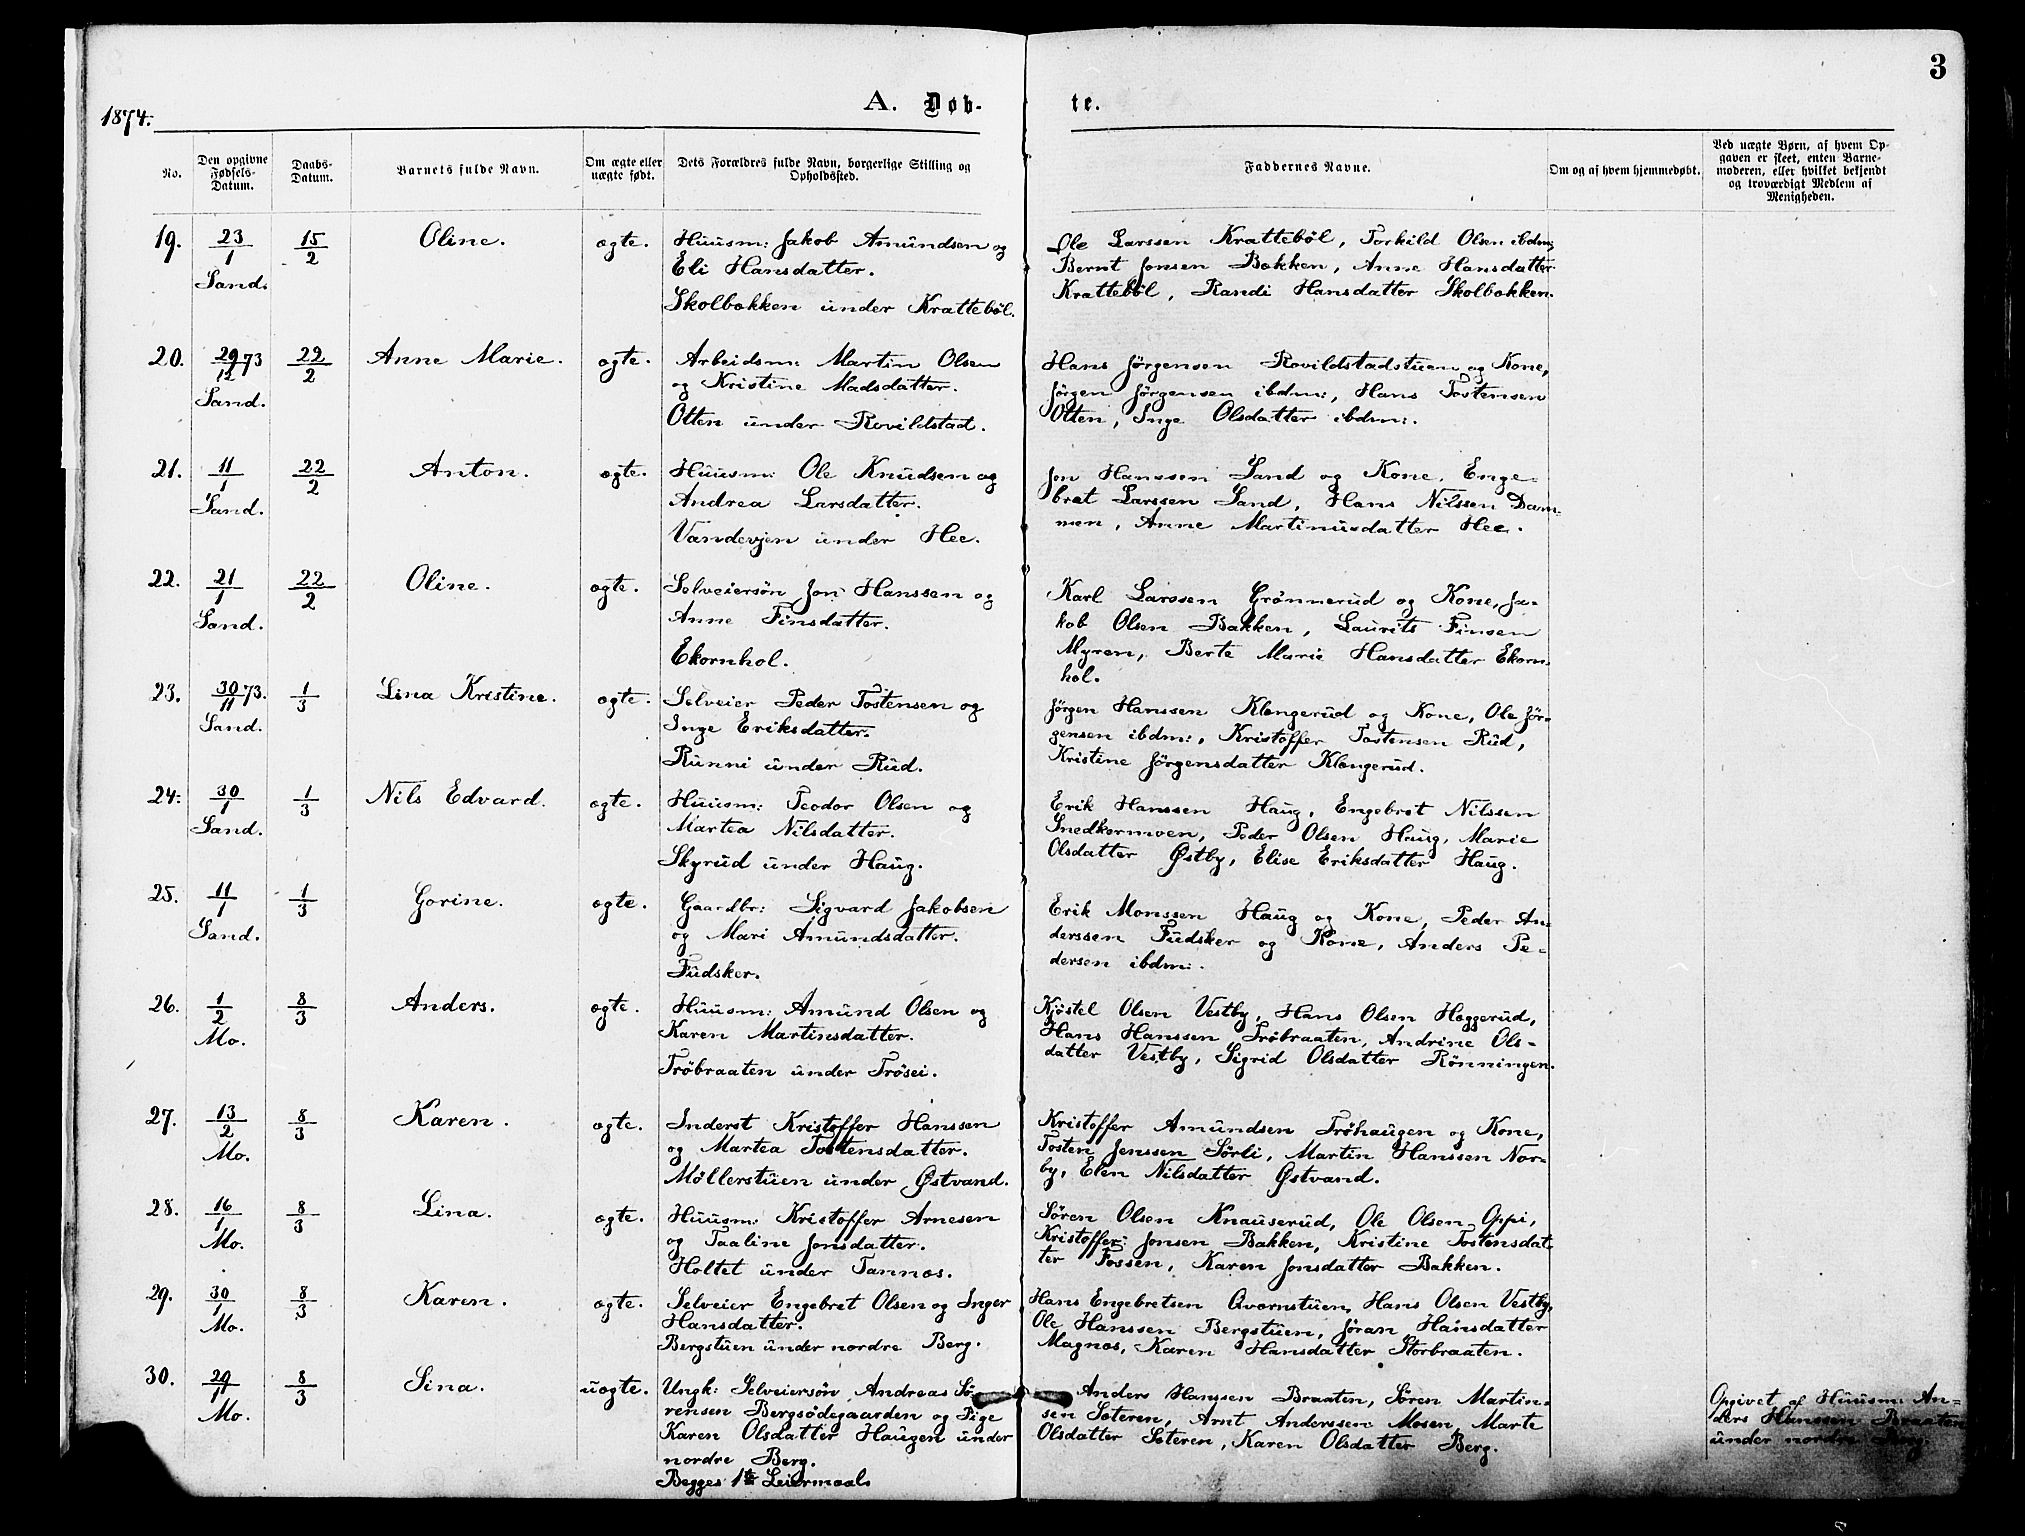 3
1874.
A. Døb-
te.
No.
Den opgivne
Fødsels-
Datum.
Daabs-
Datum.
Barnets fulde Navn.
Om ægte eller
uægte født.
Dets Forældres fulde Navn, borgerlige Stilling og
Opholdssted.
Faddernes Navne.
Om og af hvem hjemmedøbt.
Ved uægte Børn, af hvem Op-
gaven er skeet, enten Barne-
moderen, eller hvilket bekjendt
og troværdigt Medlem af
Menigheden.
19. 23/1 15/2 Oline. ægte. Huusm: Jakob Amundsen og
Sand. Eli Hansdatter.
Skolbakken under Kratteböl.
Ole Larssen Kratteböl, Torkild Olsen ibdm;
Bernt Jonsen Bakken, Anne Hansdatter
Kratteböl, Randi Hansdatter Skolbakken.
20. 29/12 73 22/2 Anne Marie. ægte. Arbeidsm: Martin Olsen
Sand. og Kristine Madsdatter.
Otten under Rovildstad.
Hans Jörgensen Rovildstadstuen og Kone,
Jörgen Jörgensen ibdm:, Hans Tostensen
Otten, Inge Olsdatter ibdm:.
21. 11/1 22/2 Anton. ægte. Huusm: Ole Knudsen og
Sand. Andrea Larsdatter.
Vandevjen under Hee.
Jon Hanssen Sand og Kone, Enge-
bret Larssen Sand, Hans Nilssen Dam-
men, Anne Martinusdatter Hee.
22. 21/1 22/2 Oline. ægte. Selveiersön Jon Hanssen og
Sand. Anne Finsdatter.
Ekornhol.
Karl Larssen Grönnerud og Kone, Ja-
kob Olsen Bakken, Laurits Finsen
Myren, Berte Marie Hansdatter Ekorn-
hol.
23. 30/11 73. 1/3 Lina Kristine. ægte. Selveier Peder Tostensen og
Sand. Inge Eriksdatter.
Runni under Rud.
Jörgen Hanssen Klengerud og Kone, Ole Jör-
gensen ibdm:, Kristoffer Tostensen Rud,
Kristine Jörgensdatter Klengerud.
24. 30/1 1/3 Nils Edvard. ægte. Huusm: Teodor Olsen og
Sand. Martea Nilsdatter.
Skyrud under Haug.
Erik Hanssen Haug, Engebret Nilssen
Snedkermoen, Peder Olsen Haug, Marie
Olsdatter Østby, Elise Eriksdatter Haug.
25. 11/1 1/3 Gorine. ægte. Gaardbr: Sigvard Jakobsen
Sand. og Mari Amundsdatter.
Fudsker.
Erik Monssen Haug og Kone, Peder An-
derssen Fudsker og Kone, Anders Pe-
dersen ibdm:.
26. 1/2 8/3 Anders. ægte. Huusm: Amund Olsen og
Mo. Karen Martinsdatter.
Tröbraaten under Trösei.
Kjöstel Olsen Vestby, Hans Olsen Heggerud,
Hans Hanssen Tröbraaten, Andrine Ols-
datter Vestby, Sigrid Olsdatter Rönningen.
27. 13/2 8/3 Karen. ægte. Inderst Kristoffer Hanssen
Mo. og Martea Tostensdatter.
Møllerstuen under Østvand.
Kristoffer Amundsen Tröhaugen og Kone,
Tosten Jenssen Sörli, Martin Hanssen Nor-
by, Elen Nilsdatter Østvand.
28. 16/1 8/3 Lina. ægte. Huusm: Kristoffer Arnesen
Mo. og Taaline Jonsdatter.
Holtet under Tannæs.
Sören Olsen Knauserud, Ole Olsen Oppi,
Kristoffer Jonsen Bakken, Kristine Tostensdat-
ter Fossen, Karen Jonsdatter Bakken.
29. 30/1 8/3 Karen. ægte. Selveier Engebret Olsen og Inger
Mo. Hansdatter.
Bergstuen under nordre Berg.
Hans Engebretsen Qvernstuen, Hans Olsen Vestby,
Ole Hanssen Bergstuen, Jöran Hansdatter
Magnæs, Karen Hansdatter Storbraaten.
30. 29/1 8/3 Sina. uægte. Ungk: Selveiersön Andreas Sö-
Mo. rensen Bergsödegaarden og Pige
Karen Olsdatter Haugen under
nordre Berg.
Begges 1ste Leiermaal
Anders Hanssen Braaten, Sören Martin-
sen Sæteren, Arnt Anderssen Mosen, Marte
Olsdatter Sæteren, Karen Olsdatter Berg.
Opgivet af Huusm: An-
ders Hanssen Braaten
under nordre Berg.